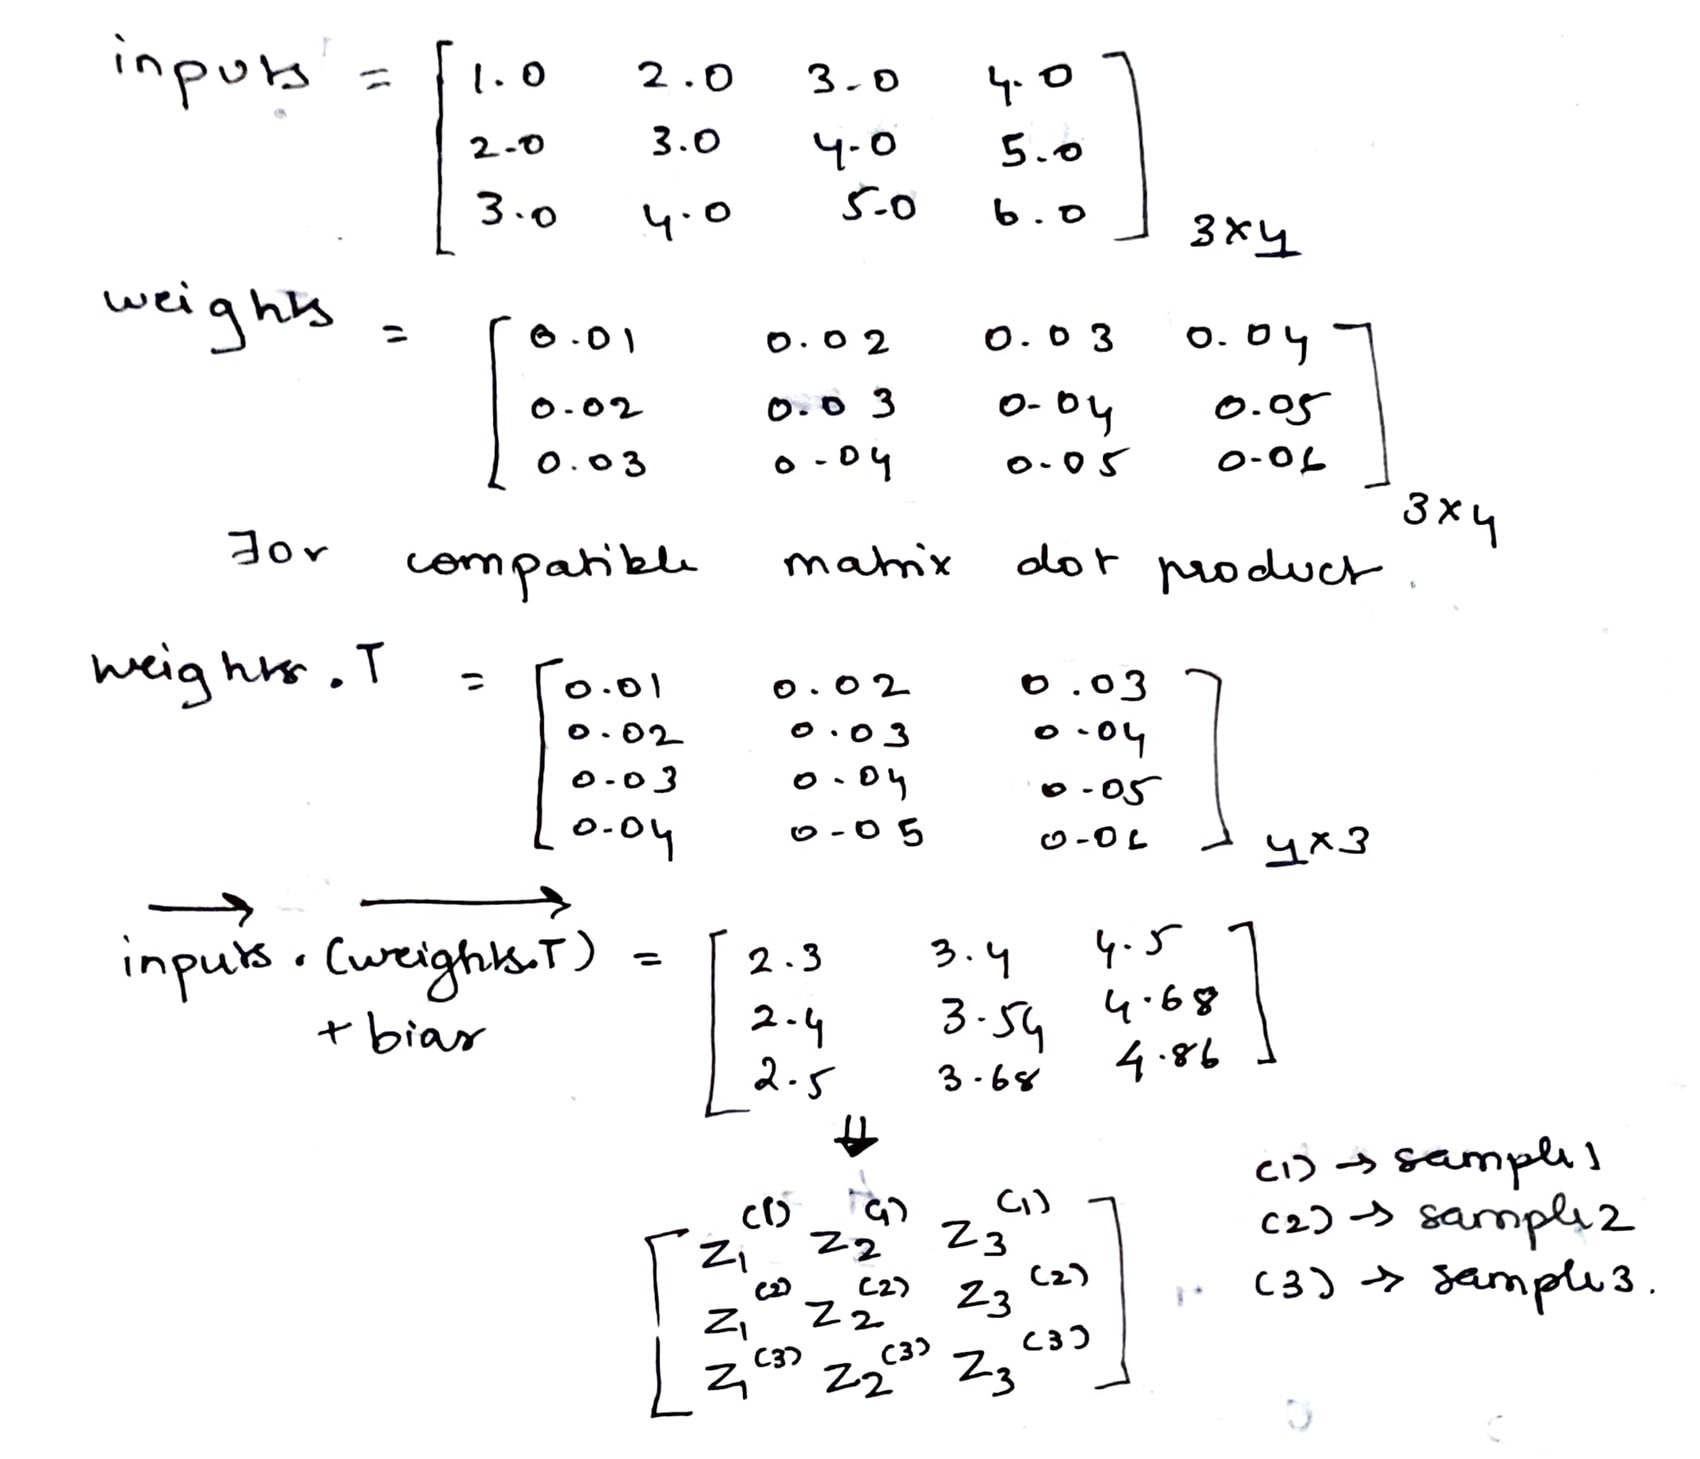 inputs = [ 1.0 2.0 3.0 4.0
2.0 3.0 4.0 5.0
3.0 4.0 5.0 6.0 ] 3×4
weights = [ 0.01 0.02 0.03 0.04
0.02 0.03 0.04 0.05
0.03 0.04 0.05 0.06 ] 3×4
For compatible matrix dot product.
weights.T = [ 0.01 0.02 0.03
0.02 0.03 0.04
0.03 0.04 0.05
0.04 0.05 0.06 ] 4×3
inputs . (weights.T) = [ 2.3 3.4 4.5
+ bias 2.4 3.54 4.68
2.5 3.68 4.86 ]
⇓
[ z₁⁽¹⁾ z₂⁽¹⁾ z₃⁽¹⁾
z₁⁽²⁾ z₂⁽²⁾ z₃⁽²⁾
z₁⁽³⁾ z₂⁽³⁾ z₃⁽³⁾ ]
(1) → sample 1
(2) → sample 2
(3) → sample 3.